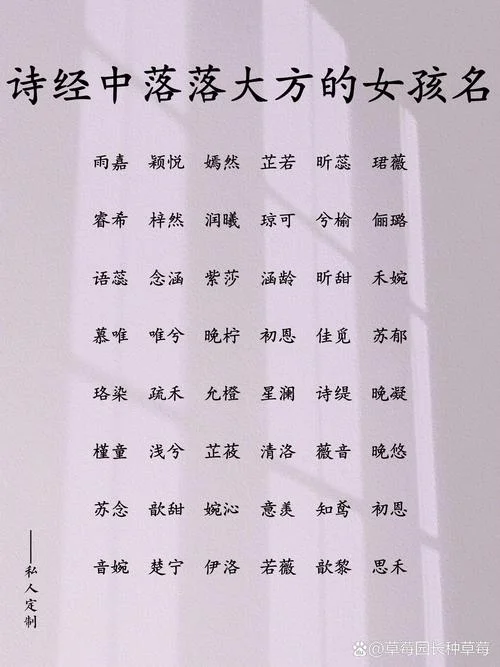 诗经中落落大方的女孩名
雨嘉 颖悦 嫣然 芷若 昕蕊 珺薇
睿希 梓然 润曦 琼可 兮榆 俪璐
语蕊 念涵 紫莎 涵龄 昕甜 禾婉
慕唯 唯兮 晚柠 初恩 佳觅 苏郁
珞染 疏禾 允橙 星澜 诗缇 晚凝
槿童 浅兮 芷莜 清洛 薇音 晚悠
苏念 歆甜 婉沁 意羡 知鸢 初恩
音婉 楚宁 伊洛 若薇 歆黎 思禾
——私人定制
@草莓园长种草莓